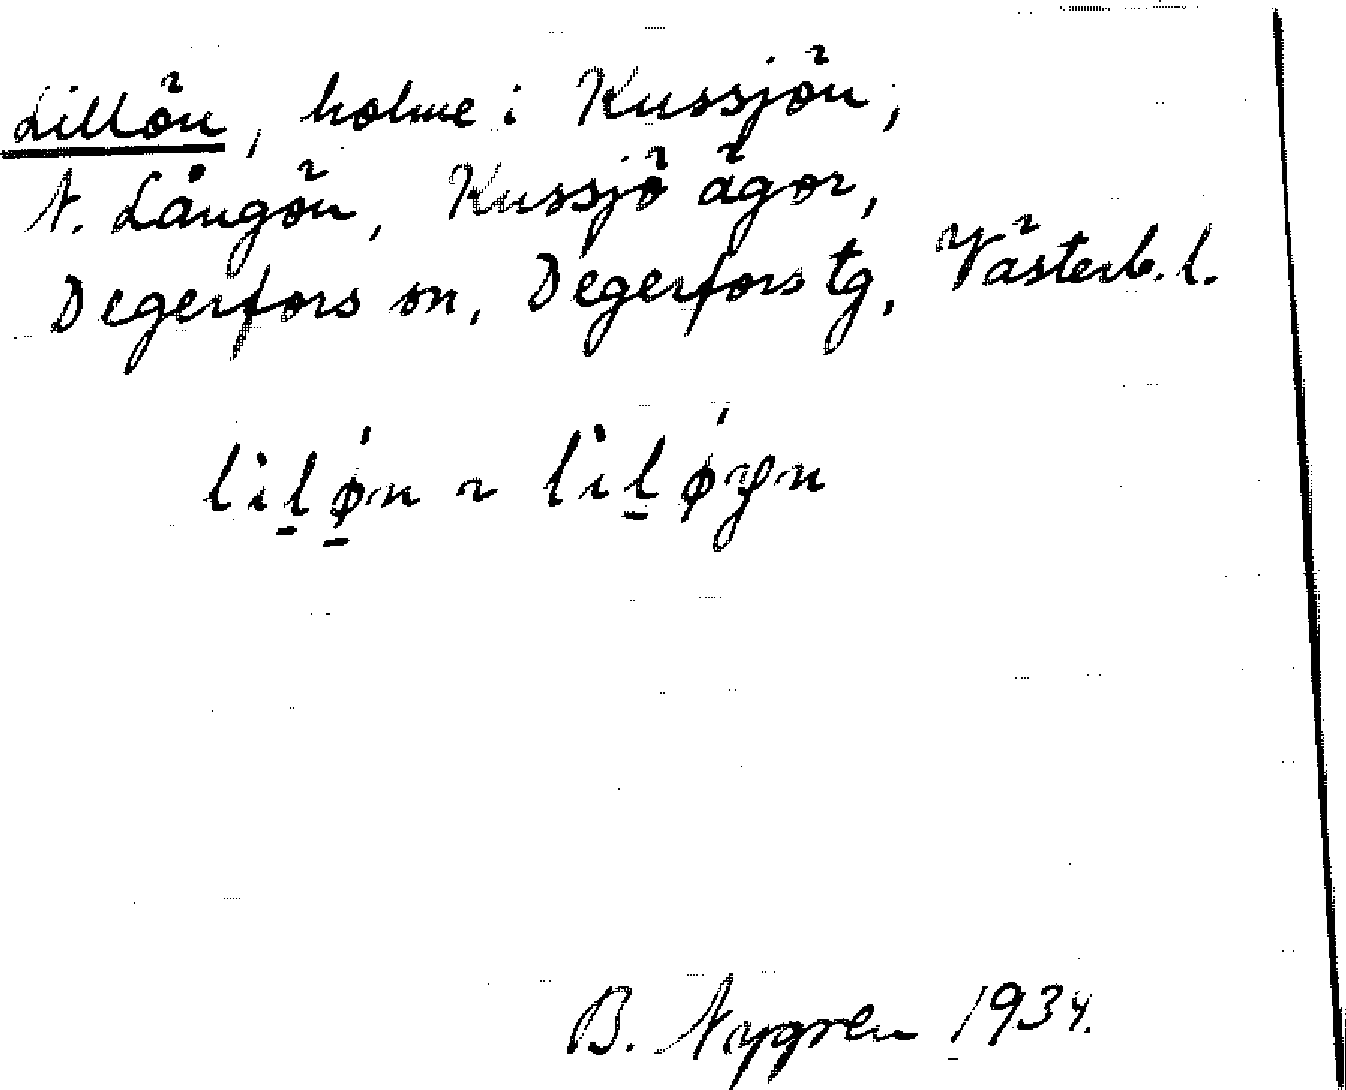 Lillön, holme i Kussjön,
N. Långön, Kussjö ägor,
Degerfors sn, Degerfors tg, Västerb. l.
lilǿn ~ lilǿyn
B. Nygren 1934.